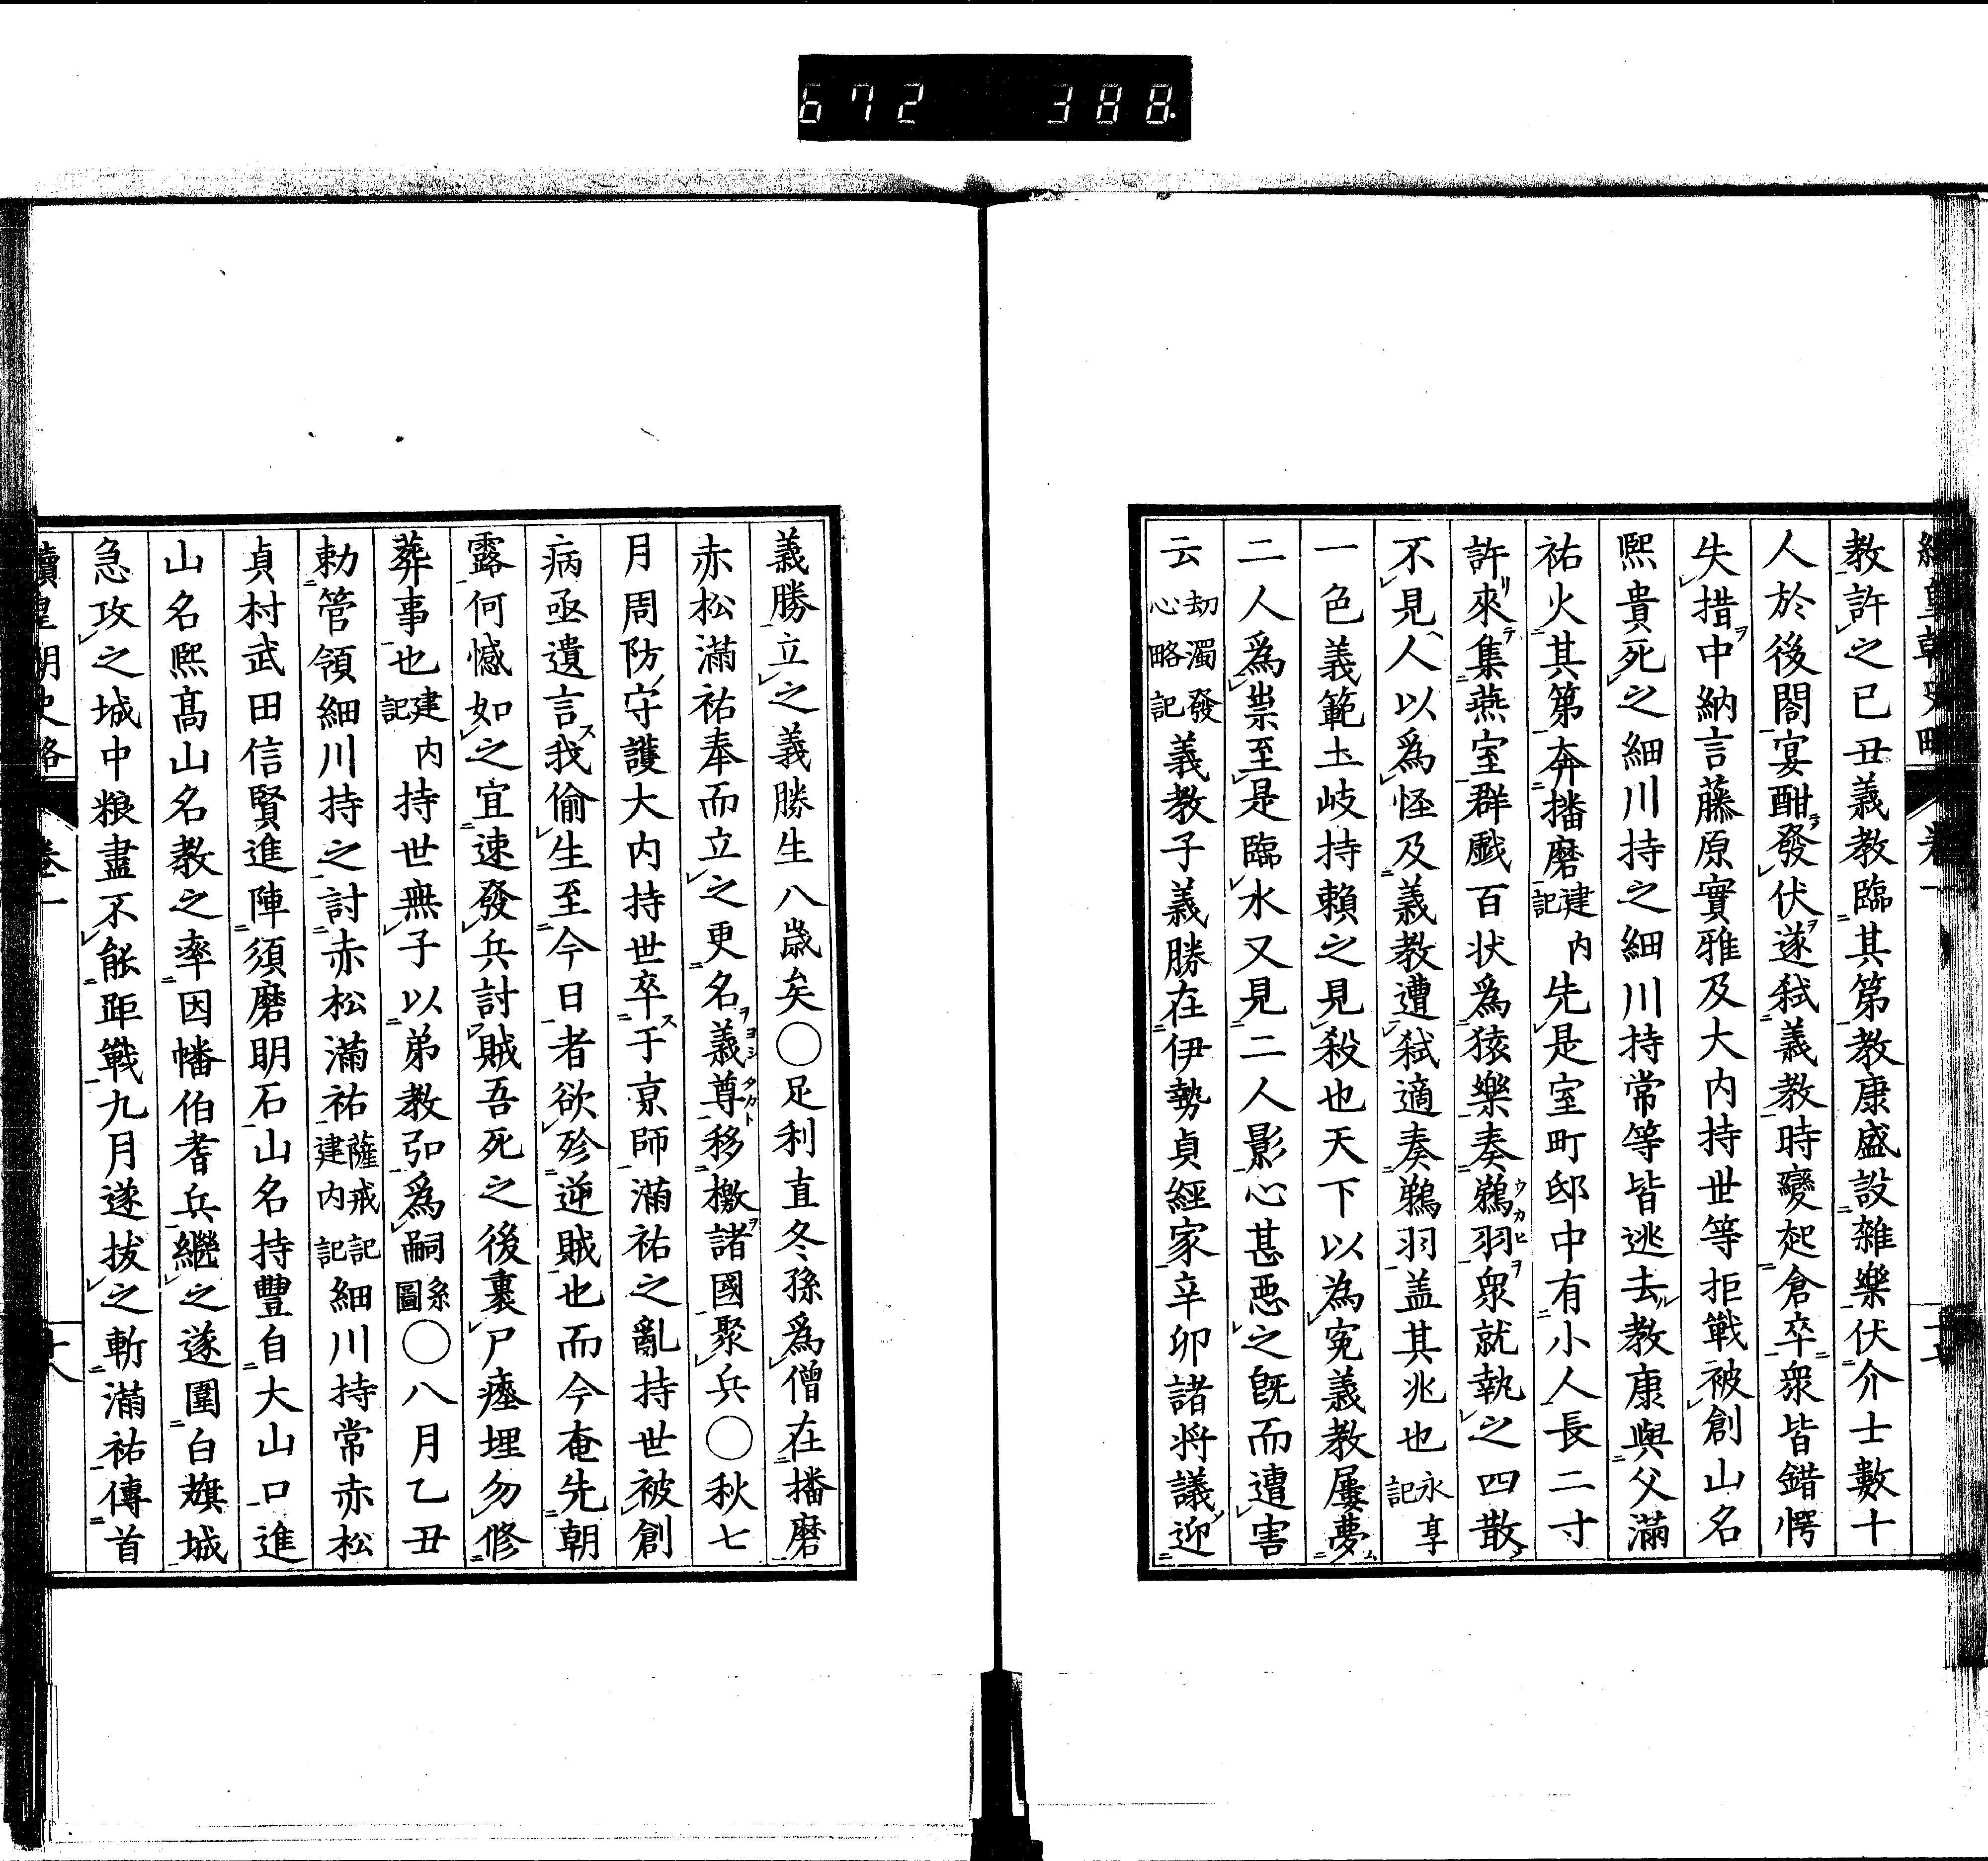 672 388
教許之已丑義教臨其第教康盛設雜樂伏介士數十
人於後閤宴酣發伏遂弑義教時變起倉卒衆皆錯愕
失措中納言藤原實雅及大内持世等拒戰被創山名
熙貴死之細川持之細川持常等皆逃去教康與父滿
祐火其第奔播磨建内記先是室町邸中有小人長二寸
許來集燕室群戲百状爲猿樂奏鵜羽衆就執之四散
不見人以爲怪及義教遭弑適奏鵜羽盖其兆也永享記
一色義範土岐持賴之見殺也天下以為寃義教屢夢
二人爲祟至是臨水又見二人影心甚惡之旣而遭害
云刧濁發心略記義教子義勝在伊勢貞經家辛卯諸将議迎
義勝立之義勝生八歳矣〇足利直冬孫爲僧在播磨
赤松滿祐奉而立之更名義尊移檄諸國聚兵〇秋七
月周防守護大内持世卒于京師滿祐之亂持世被創
病亟遺言我偷生至今日者欲殄逆賊也而今奄先朝
露何憾如之宜速發兵討賊吾死之後裹尸瘞埋勿修
葬事也建内記持世無子以弟教弘爲嗣系圖〇八月乙丑
勅管領細川持之討赤松滿祐薩戒記建内記細川持常赤松
貞村武田信賢進陣須磨明石山名持豐自大山口進
山名熙高山名教之率因幡伯耆兵繼之遂圍白旗城
急攻之城中粮盡不能距戰九月遂拔之斬滿祐傳首
續皇朝史略 卷一 十八